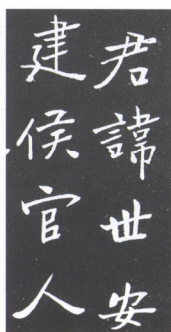 君諱世安
建侯官人